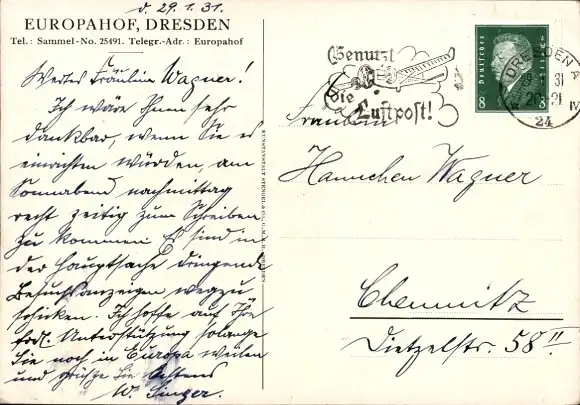 d. 29.1.31.
EUROPAHOF, DRESDEN
Tel.: Sammel-No. 25491. Telegr.-Adr.: Europahof
Wertes Fräulein Wagner!
Ich wäre Ihnen sehr
dankbar, wenn Sie es
einrichten würden, am
Sonnabend nachmittag
recht zeitig zum Schreiben
zu kommen. Es sind in
der Hauptsache dringende
Besuchsanzeigen wegzu
schicken. Ich hoffe auf Ihre
frdl. Unterstützung solange
Sie noch in Europa weilen
und grüsse Sie bestens
W. Singer.
Benutzt
die
Luftpost!
Deutsches
8 8
DRESDEN A
31
20-21
24
Fräulein
Hannchen Wagner
Chemnitz
Dietzelstr. 58 II.